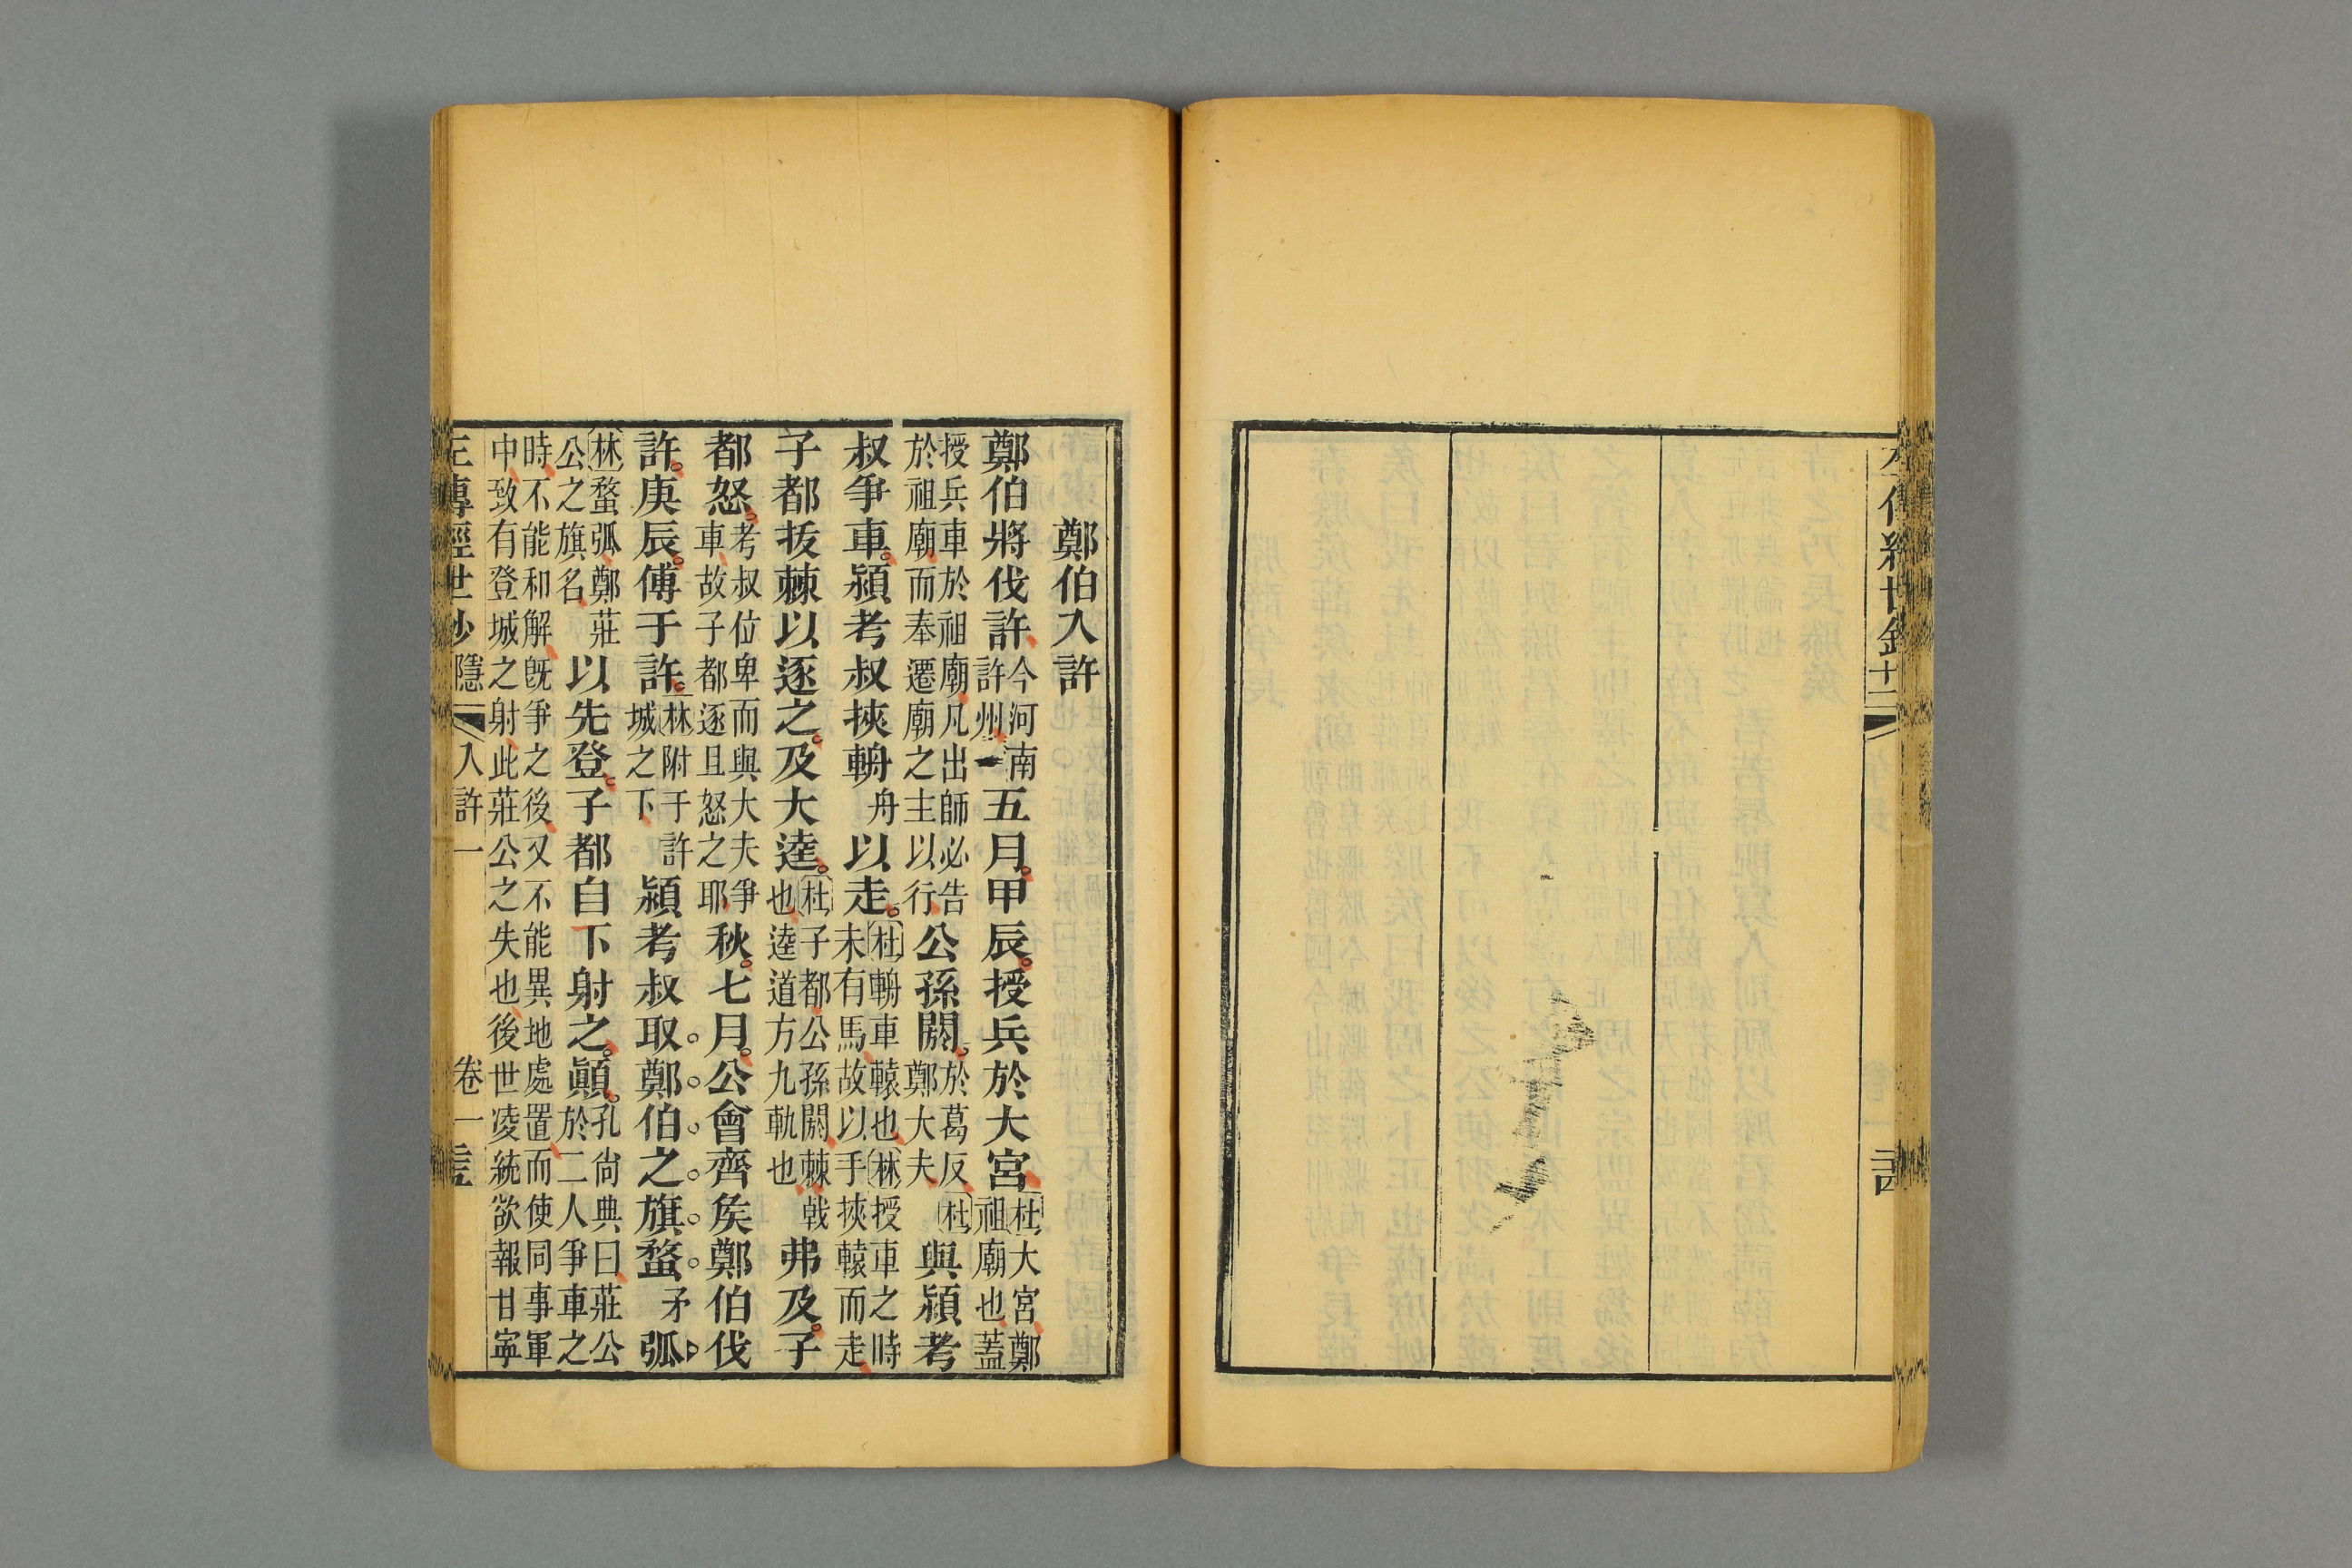 鄭伯入許
鄭伯將伐許今河南許州五月。甲辰。授兵於大宮杜大宮鄭祖廟也蓋
授兵車於祖廟凡出師必告於祖廟而奉遷廟之主以行公孫閼。於葛反杜鄭大夫與潁考
叔爭車。潁考叔挾輈舟以走。杜輈車轅也林授車之時未有馬故以手挾轅而走
子都拔棘以逐之。及大逵。杜子都公孫閼棘戟也逵道方九軌也弗及。子
都怒。考叔位卑而與大夫爭車故子都逐且怒之耶秋。七月。公會齊矦鄭伯伐
許。庚辰。傅于許。林附于許城之下潁考叔取鄭伯之旗蝥矛弧
林蝥弧鄭莊公之旗名以先登。子都自下射之。顚。孔尚典曰莊公於二人爭車之
時不能和解旣爭之後又不能異地處置而使同事軍
中致有登城之射此莊公之失也後世凌統欲報甘寧
左傳經世鈔 隱 入許一 卷一